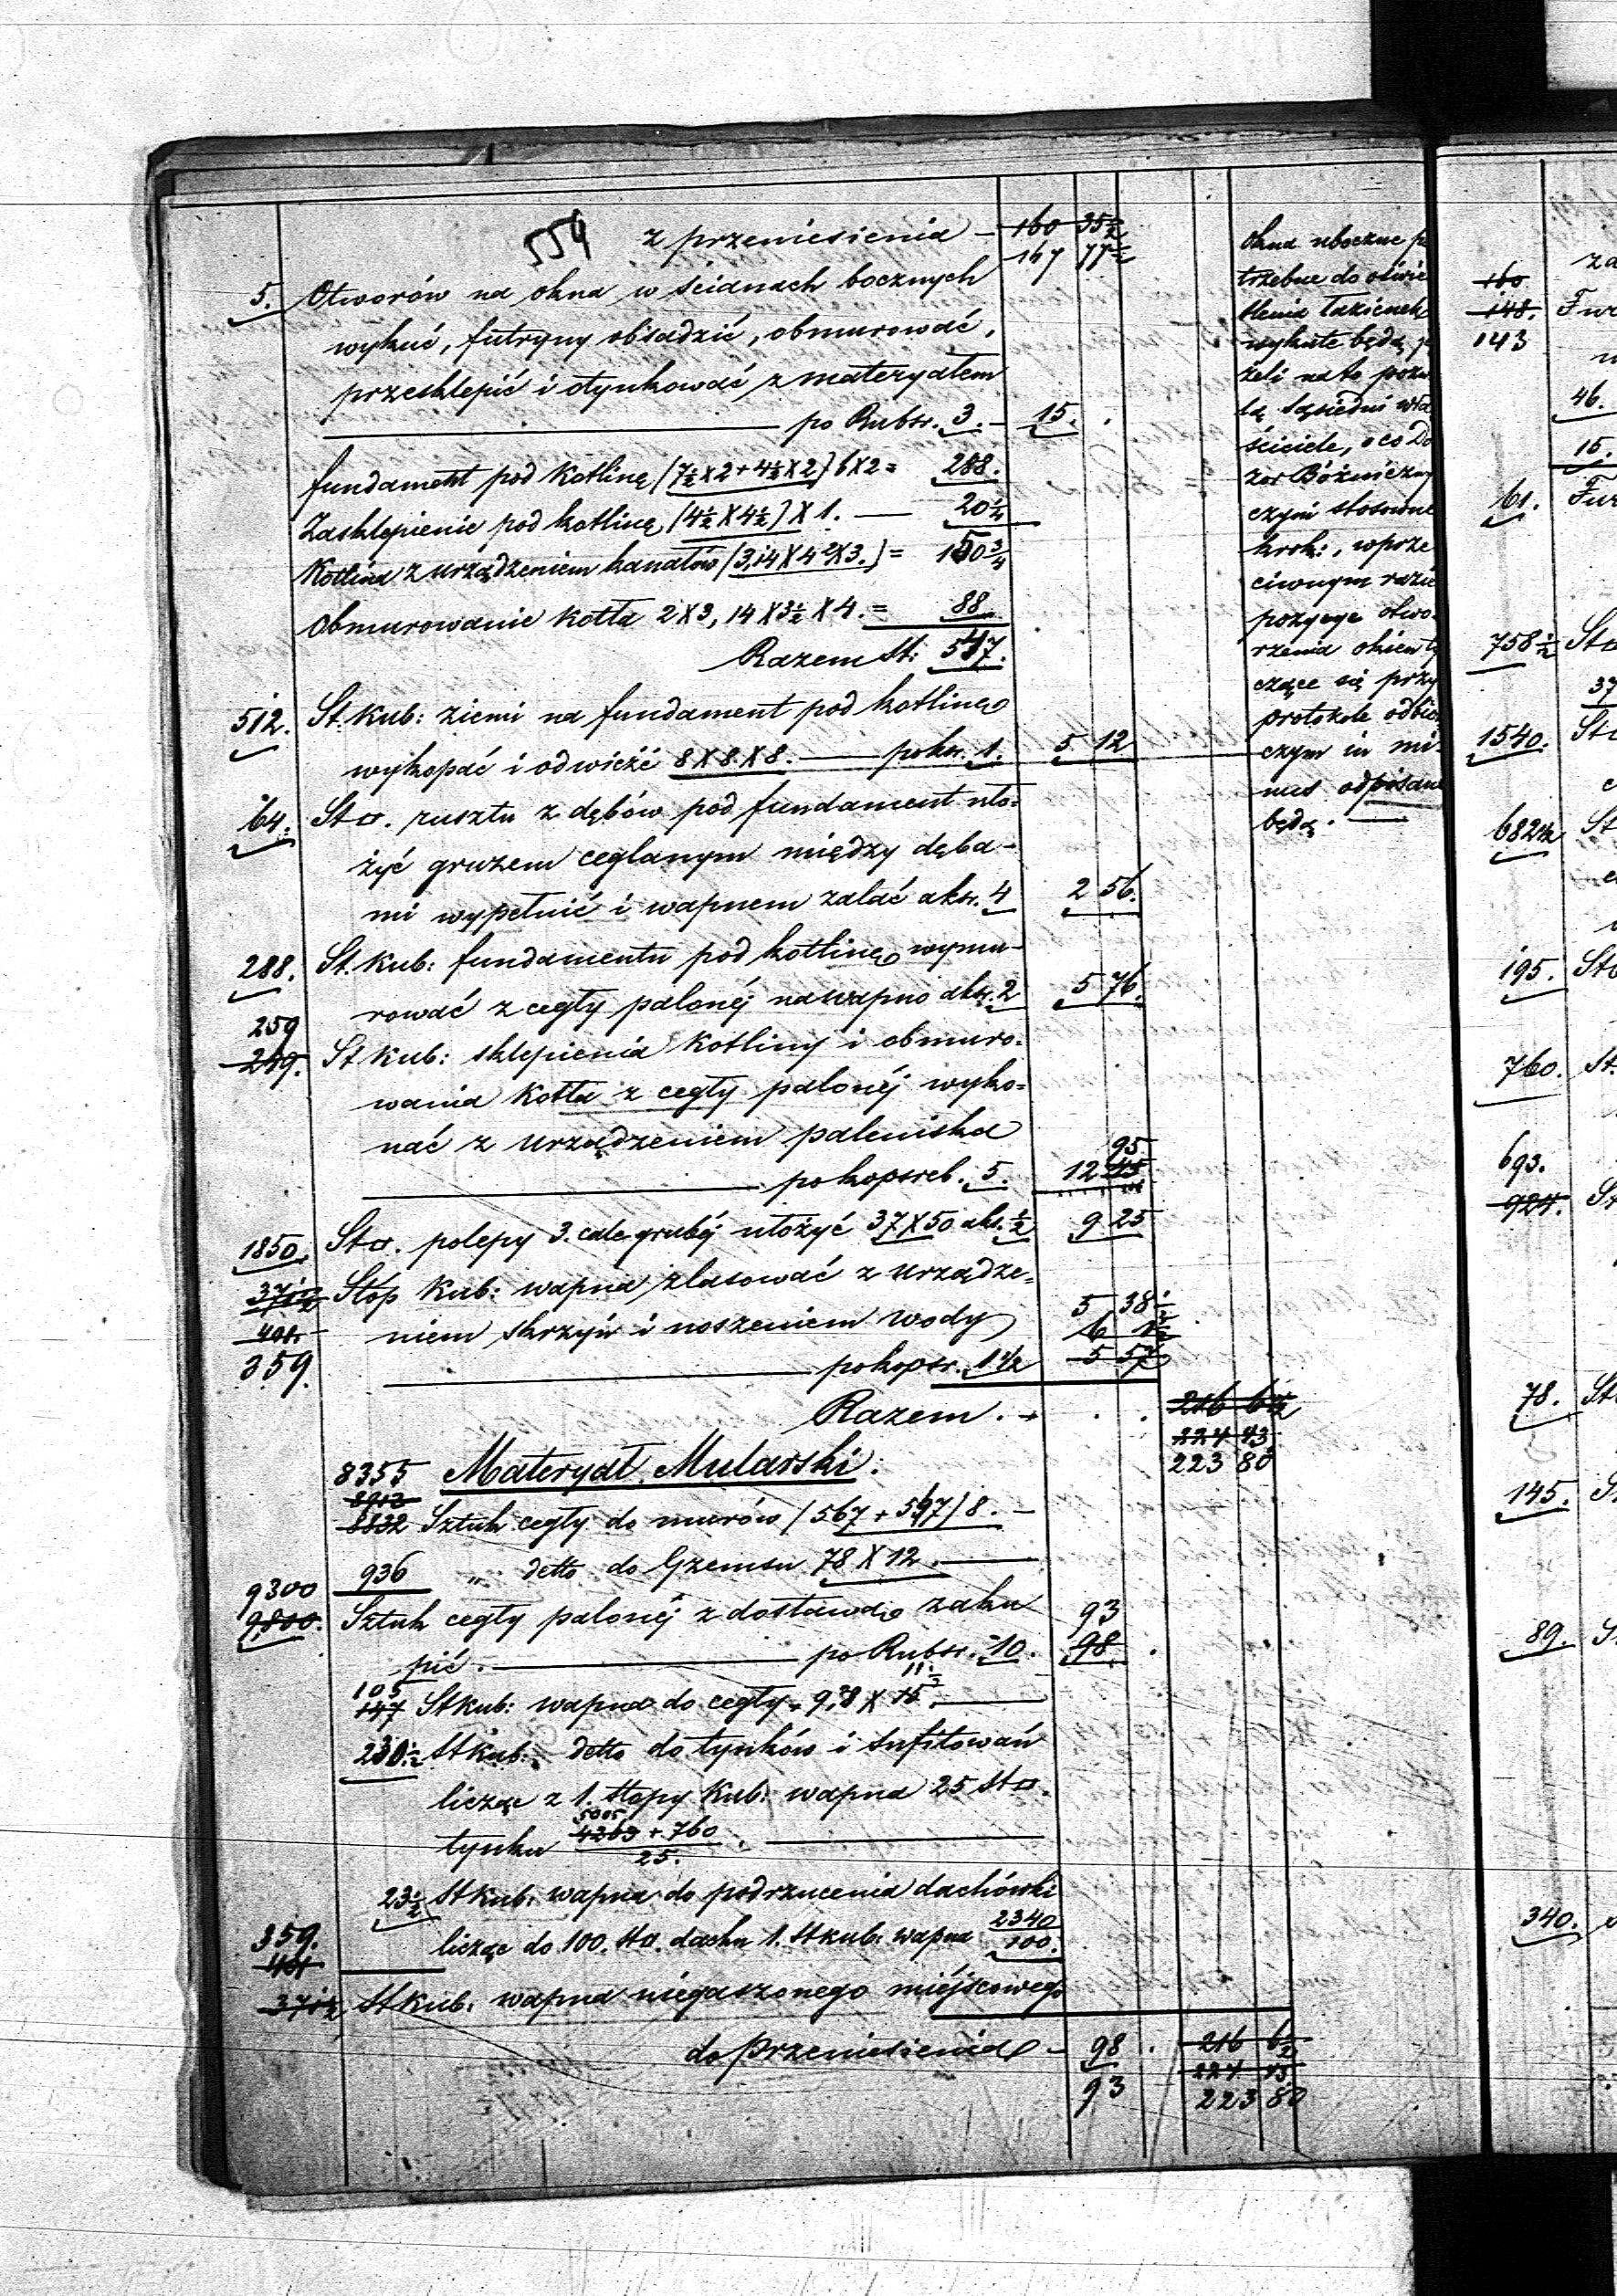 554 z przeniesienia – 160 35½
167 77½
5. Otworów na okna w ścianach bocznych
wykuć, futryny obsadzić, obmurować,
przesklepić i otynkować z materyałem
po Rubsr. 3. – 15.
fundament pod kotlinę (7½X2+4½X2) 6X2= 288.
Zasklepienie pod kotlinę (4½X4½)X1. — 20¼
Kotlina z urządzeniem kanałów (3,14X4²X3.)= 150¾
Obmurowanie kotła 2X3,14X3½X4.= 88
Razem St: 547.
512. St. kub: ziemi na fundament pod kotlinę
wykopać i odwieźć 8X8X8. — po ksr. 1. 5 12
64. St□. rusztu z dębów pod fundament uło=
żyć gruzem ceglanym między dęba-
mi wypełnić i wapnem zalać aksr. 4 2 56.
288. St. kub: fundamentu pod kotlinę wymu-
rować z cegły palonéj na wapno aksr. 2 5 76.
259
249. St kub: sklepienia kotliny i obmuro=
wania kotła z cegły palonéj wyko=
nać z urządzeniem paleniska
95
po kopsreb. 5. 12 45
1850. St□. polepy 3. cale grubéj ułożyć 37X50 aks. ½ 9 25
371½ Stóp kub: wapna zlasować z urządze=
401 niem skrzyń i noszeniem wody 5 38½
6 1½
359. po kopsr. 1½ 5 57
Razem. 216 6½
224 43
223 80
8355 Materyał Mularski.
8912
8832 Sztuk cegły do murów (567+547) 8. –
936 „ detto do Gzemsu 78X12. —
9300
9,800. Sztuk cegły palonéj z dostawą zaku 93
pić. — po Rubsr. 10. 98.
105
147 St kub: wapna do cegły 9,8 X 15 —
230½ St kub: detto do tynków i sufitowań
licząc z 1. stopy kub: wapna 25 St□.
5005
tynku 4363 + 760
25.
23½ St kub: wapna do podrzucenia dachówki
359. licząc do 100. St□. dachu 1. St kub: wapna 2340
100.
401
371½ St kub: wapna niegaszonego miéjscowego
do Przeniesienia – 98. 216 6½
224 43
93 223 80
okna uboczne p
trzebne do oświe
tlenia łazienek
wykute będą je
żeli na to pozwo
lą sąsiedni wła
ściciele, o co Do
zór Bóżniczny
czyni stosowne
kroki, w prze
ciwnym razie
pozycye otwo-
rzenia okien ty
czące się przy
protokole odbio
czym in mi-
nus odpisane
będą. —
160
148. Fur
143
46.
15.
61. Fur
758½ St□
37
1540.
682½ St
195. St□
760. St.
693.
924. St
78. St
145. S
89. S
340.